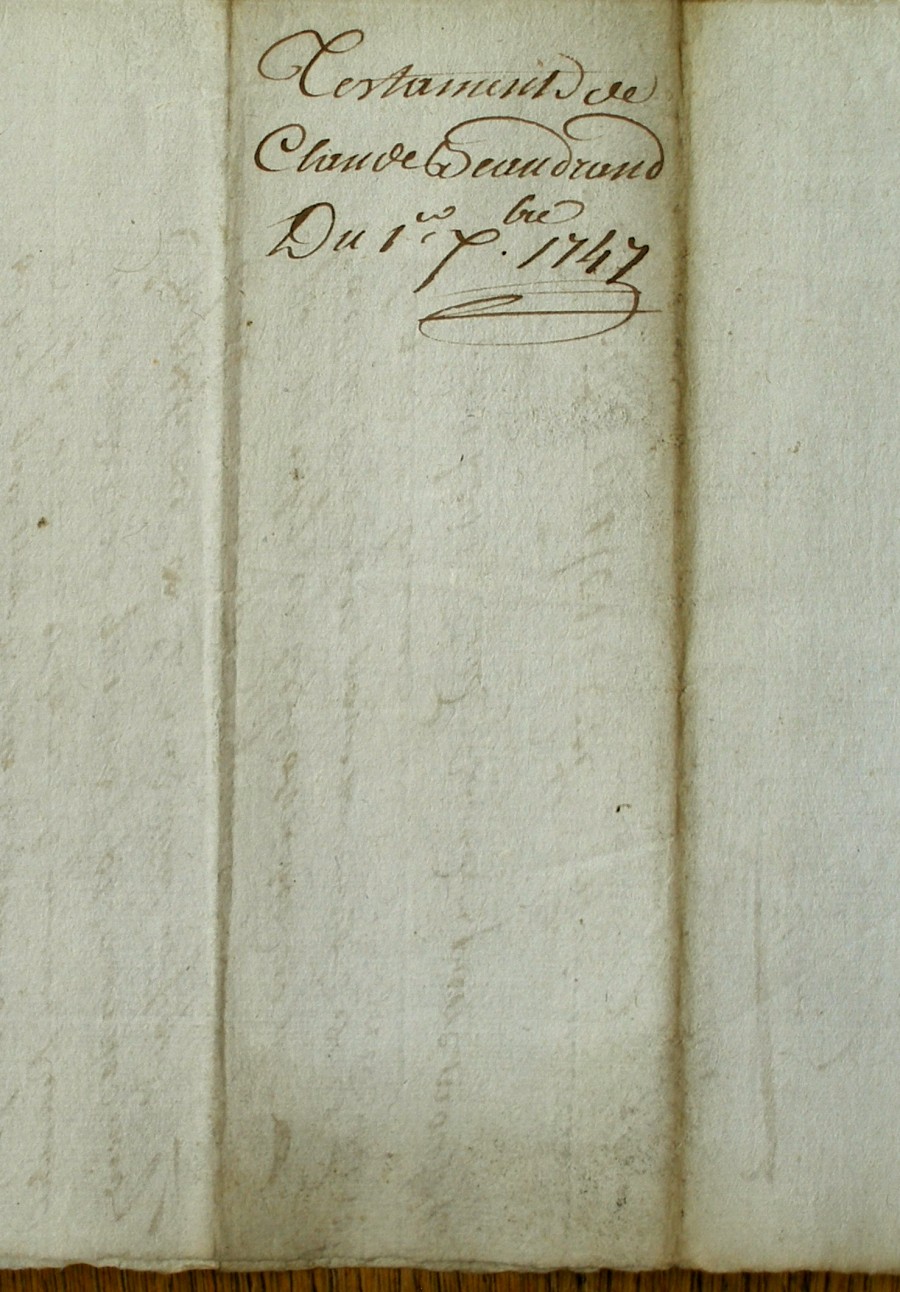 Testament de
Claude Beaudrand
Du 1er 7bre. 1747